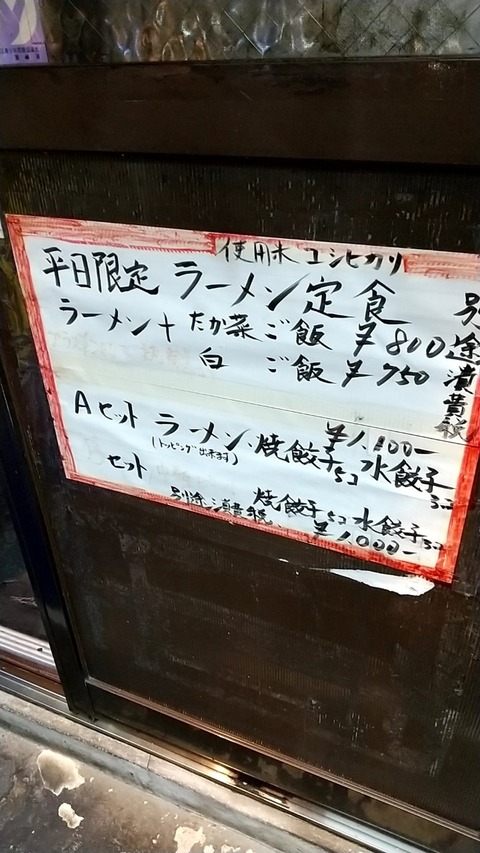 使用米 コシヒカリ
平日限定 ラーメン定食
ラーメン+ たか菜ご飯 ¥800
白 ご飯 ¥750
別途消費税
Aセット ラーメン、焼餃子5コ 水餃子5コ ¥1,100-
(トッピング出来ます)
セット 焼餃子5コ 水餃子5コ
別途消費税 ¥1,000-